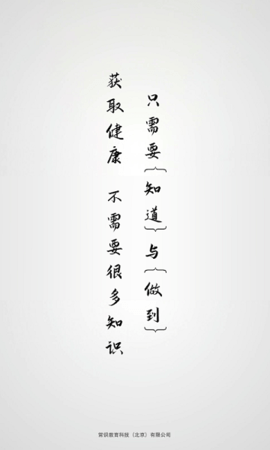 获取健康 不需要很多知识
只需要{知道}与{做到}
教育科技（北京）有限公司